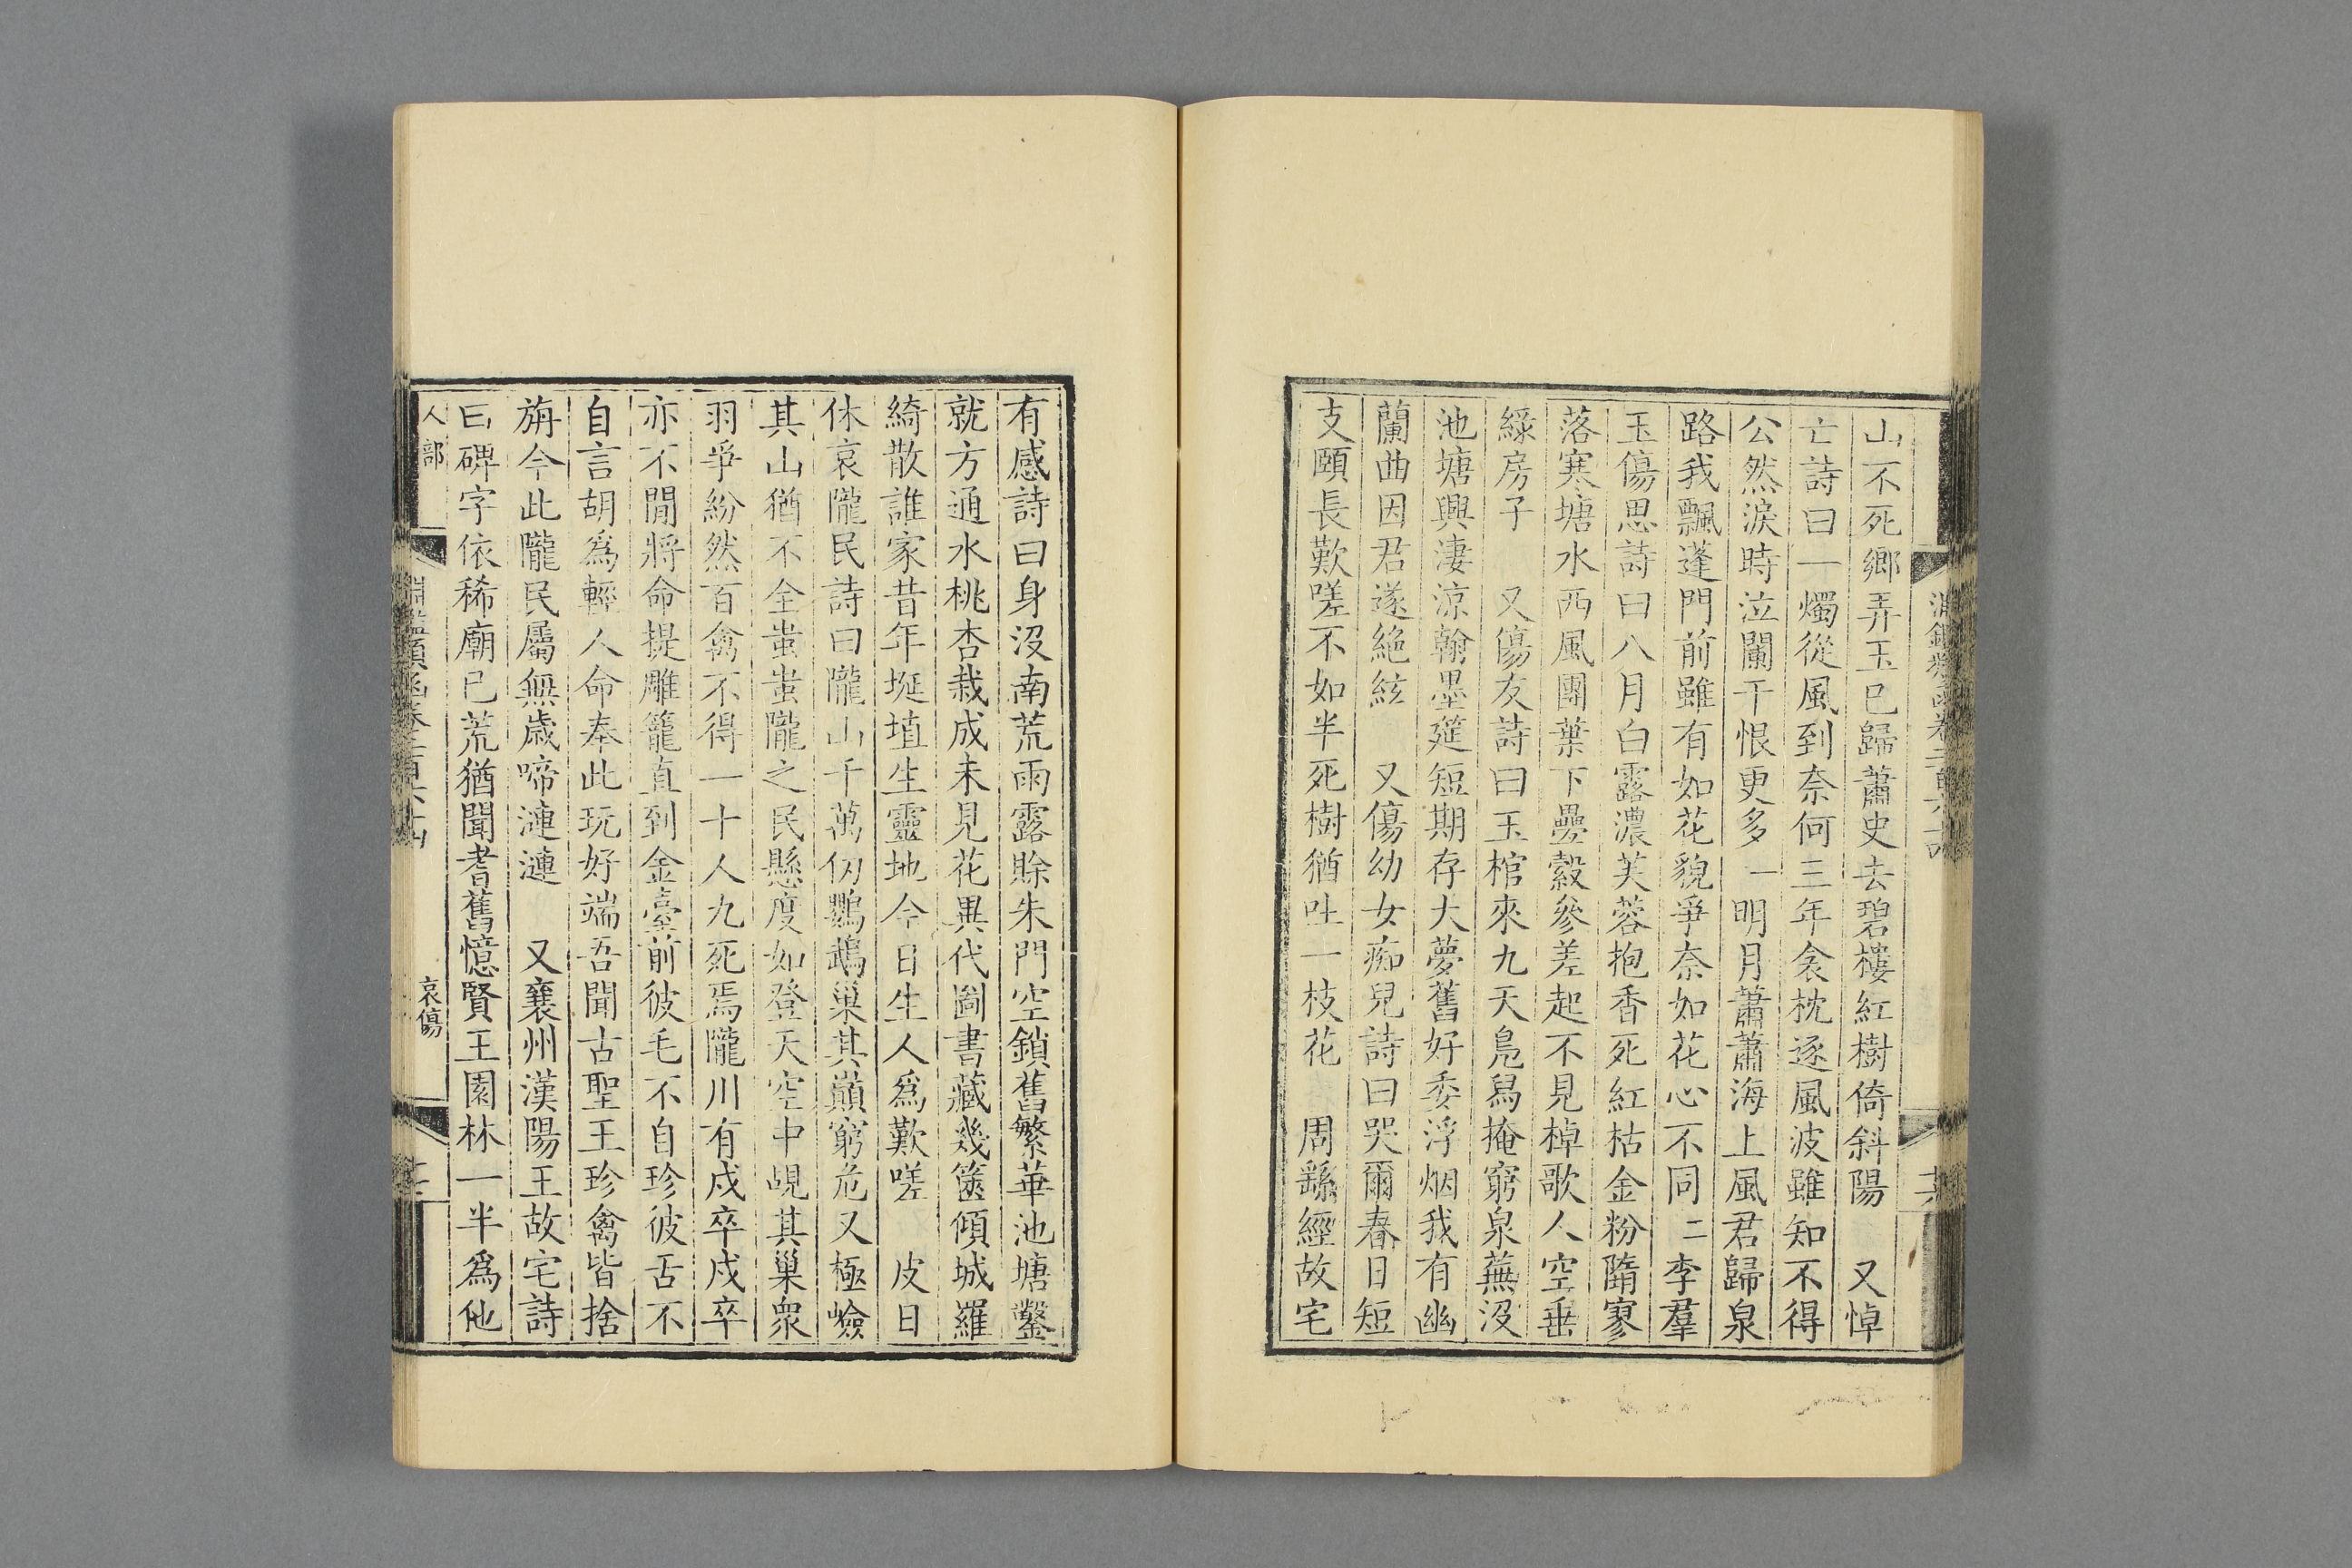 山不死鄉弄玉已歸蕭史去碧樓紅樹倚斜陽　又悼
亡詩曰一燭從風到奈何三年衾枕逐風波雖知不得
公然淚時泣闌干恨更多一明月蕭蕭海上風君歸泉
路我飄蓬門前雖有如花貌爭奈如花心不同二李羣
玉傷思詩曰八月白露濃芙蓉抱香死紅枯金粉隋寥
落寒塘水西風團葉下疊縠參差起不見棹歌人空垂
綠房子　又傷友詩曰玉棺來九天鳧舄掩窮泉蕪沒
池塘興淒涼翰墨筵短期存大夢舊好委浮烟我有幽
蘭曲因君遂絕絃　又傷幼女痴兒詩曰哭爾春日短
支頤長歎嗟不如半死樹猶吐一枝花　周繇經故宅
有感詩曰身沒南荒雨露賒朱門空鎖舊繁華池塘鑿
就方通水桃杏栽成未見花異代圖書藏幾篋傾城羅
綺散誰家昔年埏埴生靈地今日生人爲歎嗟　皮日
休哀隴民詩曰隴山千萬仞鸚鵡巢其巔窮危又極嶮
其山猶不全蚩蚩隴之民懸度如登天空中覘其巢衆
羽爭紛然百禽不得一十人九死焉隴川有戍卒戍卒
亦不閒將命提雕籠直到金臺前彼毛不自珍彼舌不
自言胡爲輕人命奉此玩好端吾聞古聖王珍禽皆捨
旃今此隴民屬無歲啼漣漣　又襄州漢陽王故宅詩
曰碑字依稀廟已荒猶聞耆舊憶賢王園林一半爲他
人部
哀傷